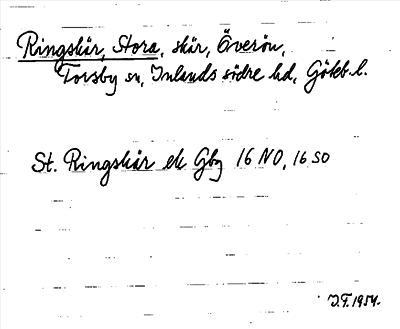 Ringskär, Stora, skär, Överön,
Torsby sn, Inlands södre hd, Göteb. l.
St. Ringskär ek Gbg 16 NO, 16 SO
J.F. 1954.